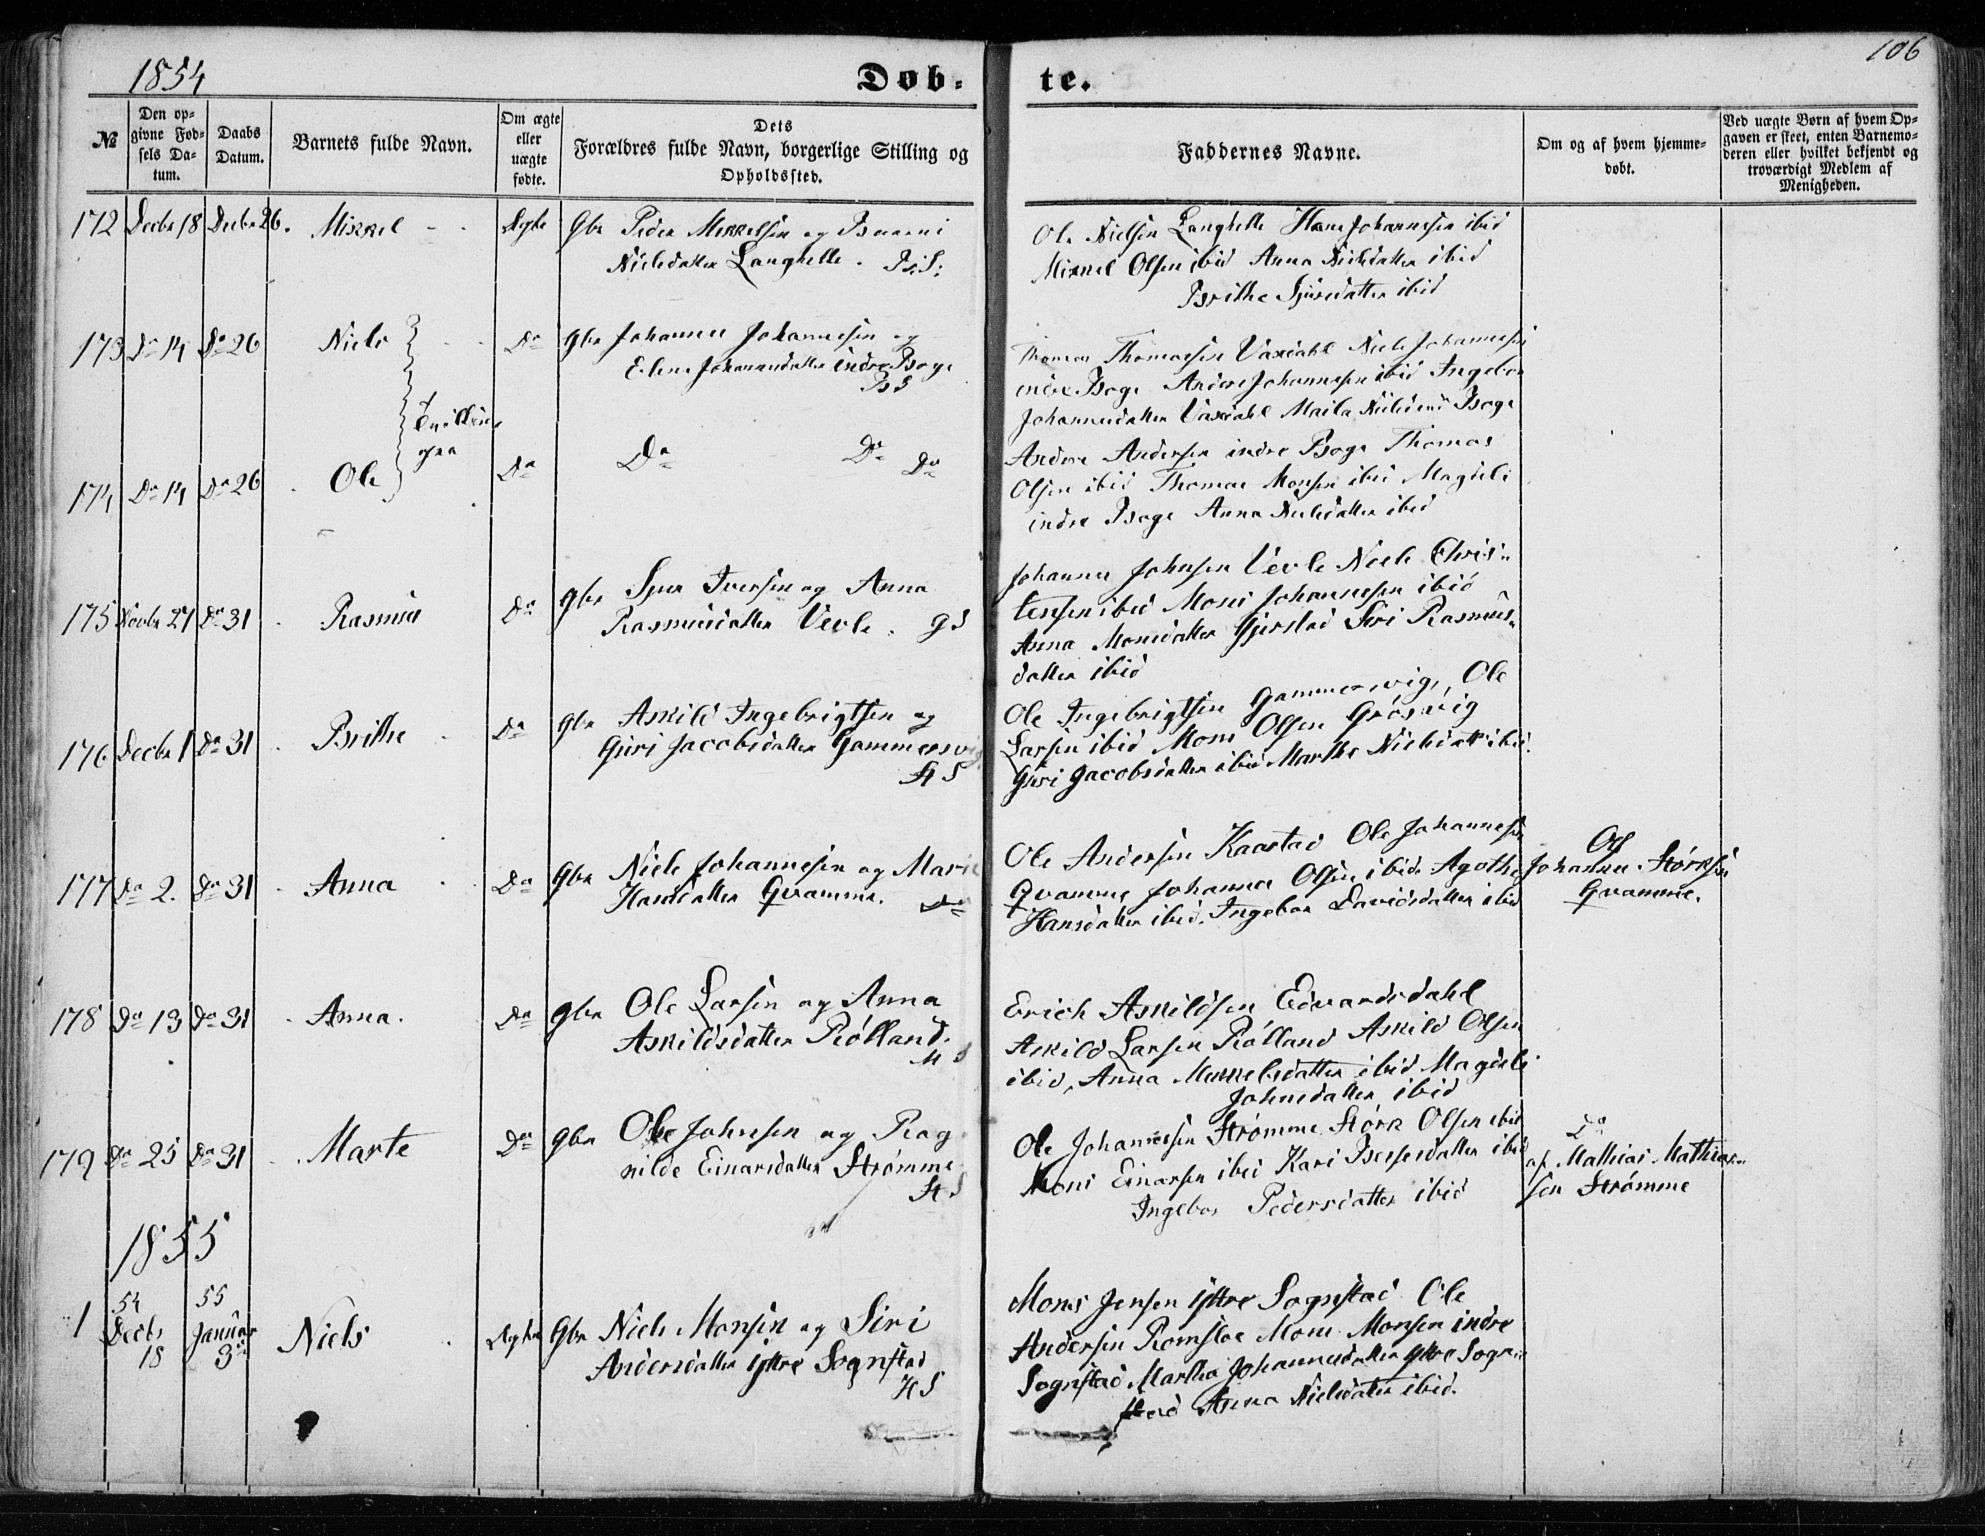 1854
Døb-
te.
106
№
Den op-
givne Fød-
sels Da-
tum.
Daabs
Datum.
Barnets fulde Navn.
Om ægte
eller
uægte
fødte.
Dets
Forældres fulde Navn, borgerlige Stilling og
Opholdssted.
Faddernes Navne.
Om og af hvem hjemme-
døbt.
Ved uægte Børn af hvem Op-
gaven er skeet, enten Barnemo-
deren eller hvilket bekjendt og
troværdigt Medlem af
Menigheden.
172 Decbr 18 Decbr 26. Mikkel Ægte Gbr Peder Mikkelsen og
Nielsdatter Langhelle.
Ole Nielsen Langhelle Hans Johannesen ibid
Mikkel Olsen ibid Anna Nielsdatter ibid
Brithe Sjursdatter ibid
173 Do 14 Do 26 Niels Do Gbr Johannes Johannesen og
Elen Johannesdatter indre Boge
BS
Tvillinger
Thomas Thomassen Vaxdahl Niels Johannessen
indre Boge Anders Johannesen ibid Ingebor
Johannesdatter Vaxdahl Nielsd Boge
174 Do 14 Do 26 Ole Do Do Do Do
Anders Andersen indre Boge Thomas
Olsen ibid Thomas Monsen ibid Magdeli
indre Boge Anna Nielsdatter ibid
175 Novbr 27 Do 31 Rasmus Do Gbr Sjur Iversen og Anna
Rasmusdatter Vevle. GS
Johannes Johnsen Vevle Niels Chris-
tensen ibid Mons Johannesen ibid
Anna Monsdatter Gjerstad Siri Rasmus-
datter ibid
176 Decbr 1 Do 31 Brithe Do Gbr Askild Ingebrigtsen og
Guri Jacobsdatter Gammersvig
St S
Ole Ingebrigtsen Gammersvig, Ole
Larsen ibid Mons Olsen Grøsvig
Guri Jacobsdatter ibid Marthe Nielsdatt ibid.
177 Do 2. Do 31 Anna Do Gbr Niels Johannesen og Mari
Hansdatter Qvamme. Do
Ole Andersen Kaastad Ole Johannesen
Qvamme Johannes Olsen ibid. Agothe
Hansdatter ibid. Ingebor Davidsdatter ibid
Johannes Størksen
Qvamme.
178 Do 13 Do 31 Anna. Do Gbr Ole Larsen og Anna
Askildsdatter Rølland.
Erich Askildsen Edvardsdahl
Askild Larsen Rølland Askild Olsen
ibid, Anna Mikkelsdatter ibid Magdeli
Johnsdatter ibid
179 Do 25 Do 31 Marte Do Gbr Ole Johnsen og Rag
nilde Einarsdatter Strømme
St S
Ole Johannesen Strømme Størk Olsen ibid
Mons Einarsen ibid Kari ibid
Ingebor Pedersdatter ibid
Do
af Mathias Mathias-
sen Strømme
1855
1 54 Decbr 18 55 Januar 3 Niels Ægte Gbr Niels Monsen og Siri
Andersdatter ytre Sognstad
HS
Mons Jensen ytre Sognstad Ole
Andersen Romsloe Mons Monsen indre
Sognstad Martha Johannesdatter ytre Sogn-
stad Anna Nielsdatter ibid.